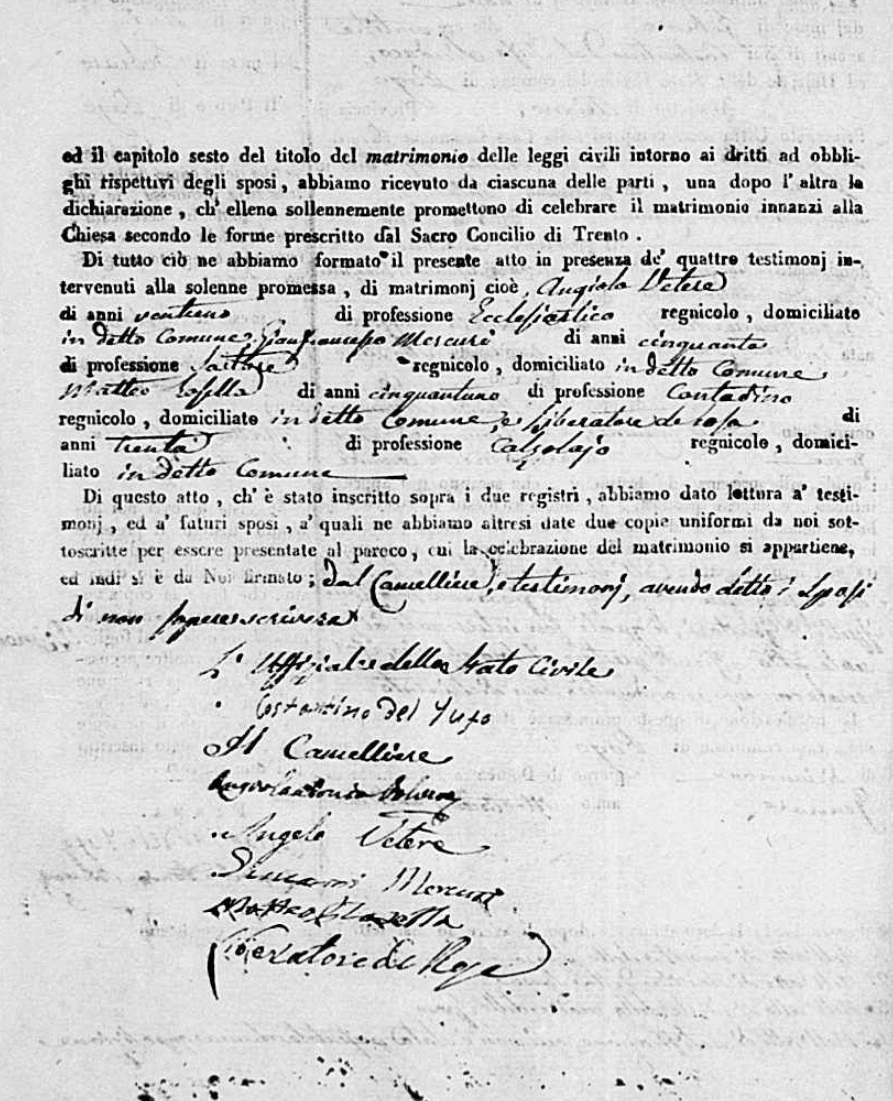 ed il capitolo sesto del titolo del matrimonio delle leggi civili intorno ai dritti ad obbli-
ghi rispettivi degli sposi, abbiamo ricevuto da ciascuna delle parti, una dopo l'altra la
dichiarazione, ch'elleno sollennemente promettono di celebrare il matrimonio innanzi alla
Chiesa secondo le forme prescritto dal Sacro Concilio di Trento.
Di tutto ciò ne abbiamo formato il presente atto in presenza de' quattro testimonj in-
tervenuti alla solenne promessa, di matrimonj cioè, Angiolo Vetere
di anni ventuno di professione Ecclesiastico regnicolo, domiciliato
in detto Comune, Mercuri di anni cinquanta
di professione Sartore regnicolo, domiciliato in detto Comune
Matteo di anni cinquantuno di professione Contadino
regnicolo, domiciliato in detto Comune, e Liberatore de Rosa di
anni trenta di professione Calzolajo regnicolo, domici-
liato in detto Comune
Di questo atto, ch'è stato inscritto sopra i due registri, abbiamo dato lettura a' testi-
monj, ed a' futuri sposi, a' quali ne abbiamo altresi date due copie uniformi da noi sot-
toscritte per essere presentate al paroco, cui la celebrazione del matrimonio si appartiene,
ed indi si è da Noi firmato; dal Cancelliere, e testimonj, avendo detto i Sposi
di non sapere scrivere
L'Uffiziale dello Stato Civile
Costantino del
Il Cancelliere
Angelo Vetere
Mercuri
Matteo
Liberatore de Rosa